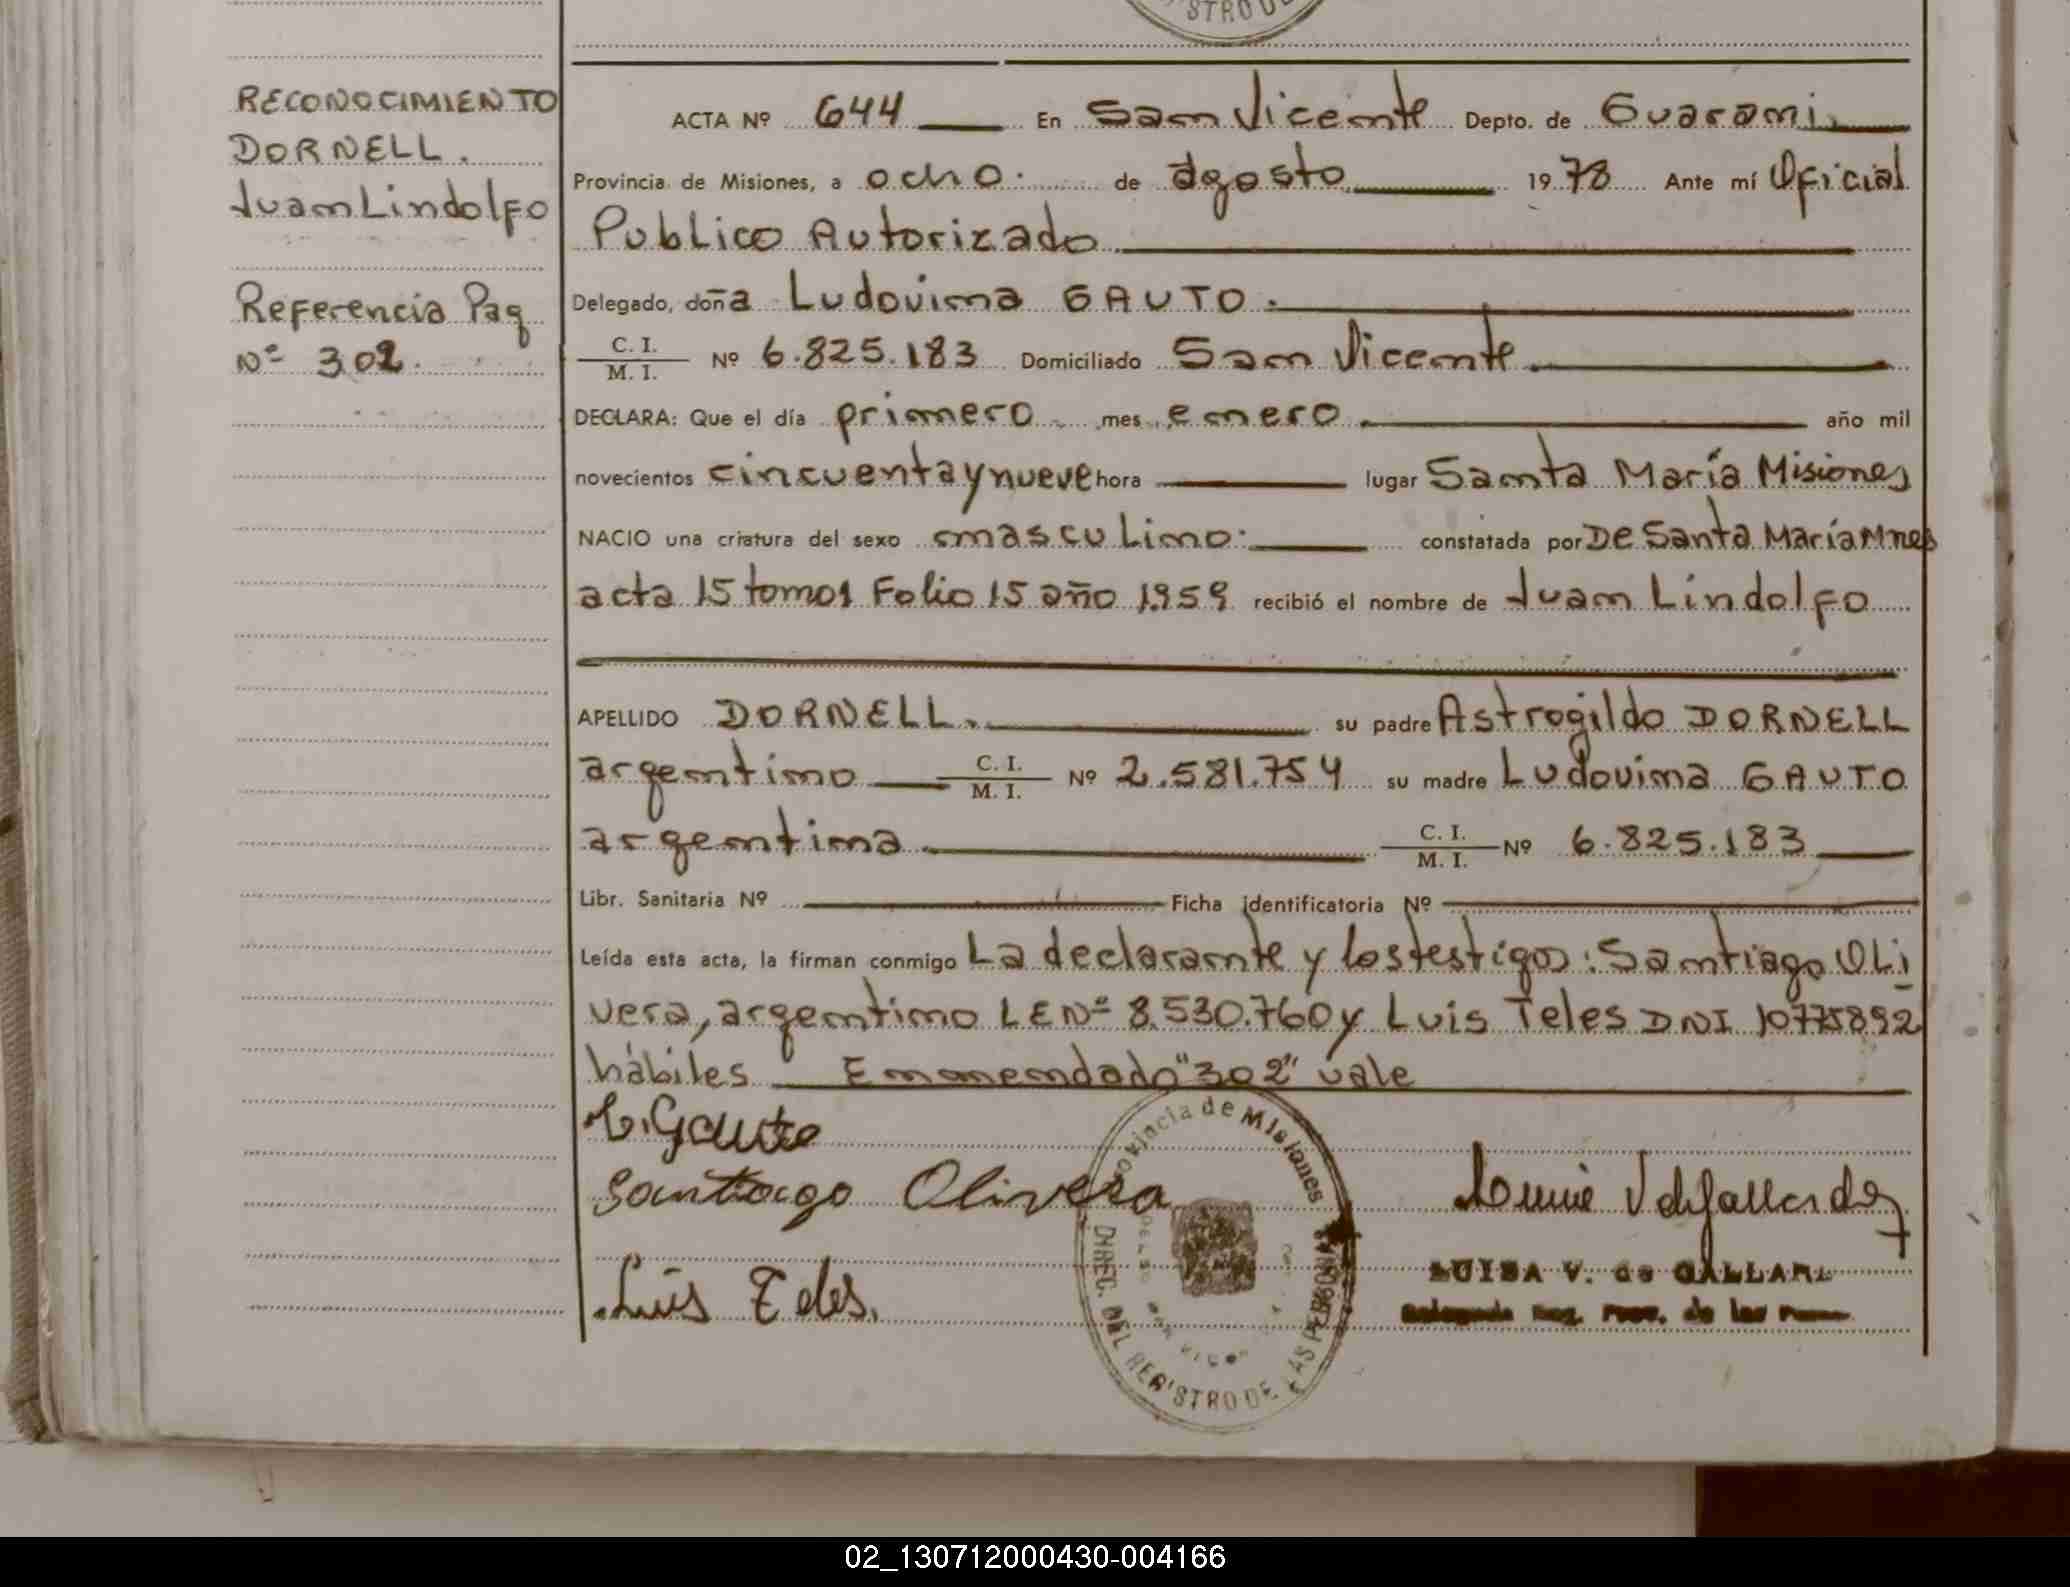 STRO DE
RECONOCIMIENTO
DORNELL.
Juan Lindolfo
Referencia Pag
Nº 302.
ACTA Nº 644 En San Vicente Depto. de Guaraní,
Provincia de Misiones, a ocho. de agosto 1978 Ante mí Oficial
Publico Autorizado
Delegado, doña Ludovina GAUTO.
C. I.
M. I. Nº 6.825.183 Domiciliado San Vicente
DECLARA: Que el día primero mes enero. año mil
novecientos cincuenta y nueve hora lugar Santa María Misiones
NACIO una criatura del sexo masculino. constatada por De Santa María Mnes
acta 15 tomo 1 Folio 15 año 1959 recibió el nombre de Juan Lindolfo
APELLIDO DORNELL. su padre Astrogildo DORNELL
argentino C. I.
M. I. Nº 2.581.754 su madre Ludovina GAUTO
argentina C. I.
M. I. Nº 6.825.183
Libr. Sanitaria Nº Ficha identificatoria Nº
Leída esta acta, la firman conmigo La declarante y los testigos: Santiago Oli
vera, argentino LE Nº 8.530.760 y Luis Teles DNI 10775892
hábiles Enmendado "302" vale
L. Gauto
Santiago Olivera
Luis Teles.
Provincia de Misiones
DIREC. DEL REGISTRO DE LAS PERSONAS
LUISA V. de GALLARD
02_130712000430-004166